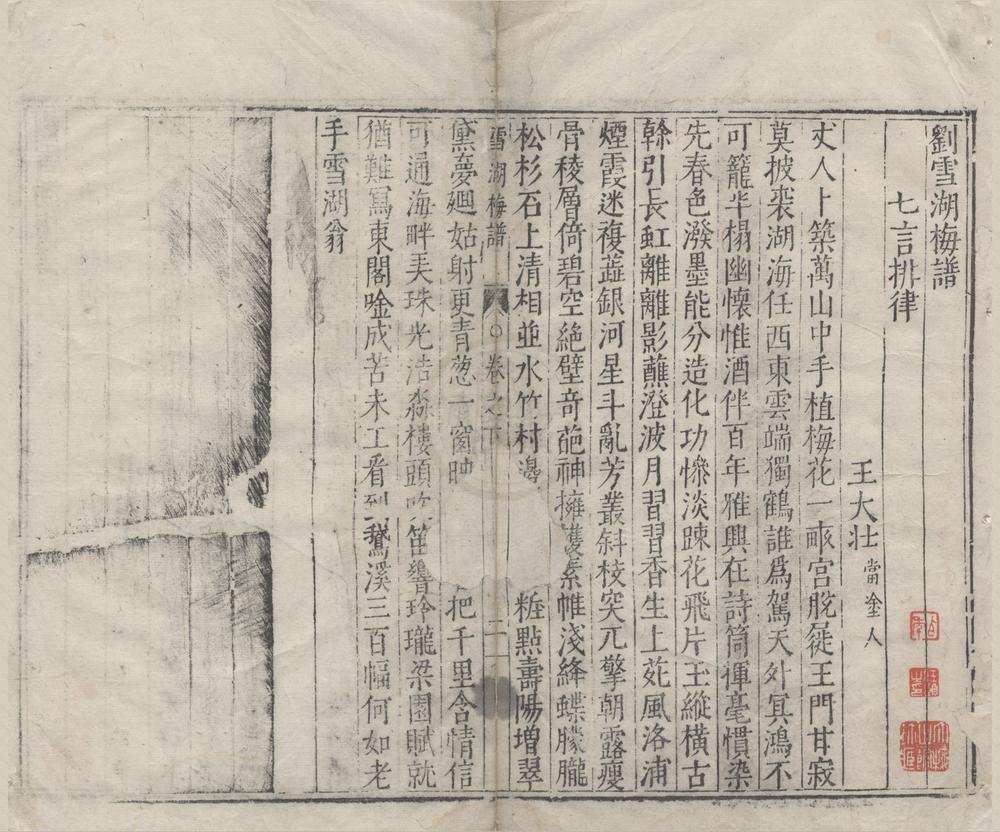 劉雪湖梅譜
七言排律
王大壯當塗人
丈人卜築萬山中手植梅花一畝宮脫屣王門甘寂
莫披裘湖海任西東雲端獨鶴誰爲駕天外冥鴻不
可籠半榻幽懷惟酒伴百年雅興在詩筒揮毫慣染
先春色潑墨能分造化功慘淡踈花飛片玉縱橫古
榦引長虹離離影蘸澄波月習習香生上苑風洛浦
煙霞迷複蕋銀河星斗亂芳叢斜枝突兀擎朝露瘦
骨稜層倚碧空絶壁奇葩神擁護素帷淺絳蝶朦朧
松杉石上清相並水竹村邊粧點壽陽增翠
雪湖梅譜 卷之下 二一
黛夢廻姑射更青葱一窗把千里含情信
可通海畔弄珠光浩淼樓頭吹笛響玲瓏梁園賦就
猶難寫東閣唫成苦未工看到鵝溪三百幅何如老
手雪湖翁